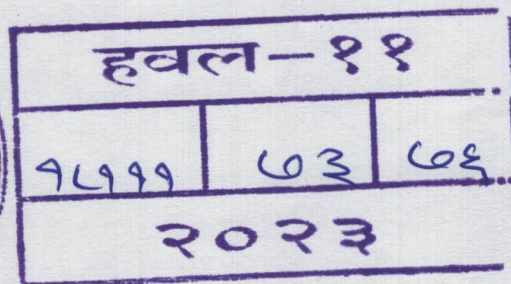 हवल-११
१८१११ ७३ ७६
२०२३